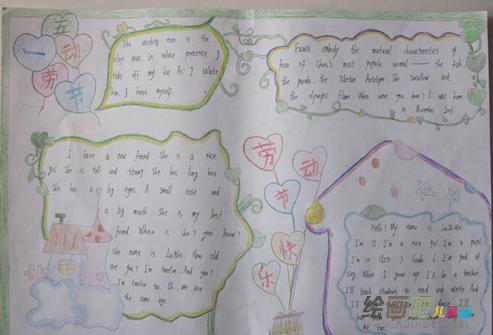 五
一
动
劳
节
The working man is the
only man. In whose presence I
take off my hat. As I salute
him, I honor myself.
Fuwa embody the natural characteristics of
four of China's most popular animal —— the fish,
the panda, the Tibetan Antelope, The swallow and
the olympic flame. When were you born? I was born
in November 2nd.
I have a new friend. She is a nice
girl. She is tall and strong. She has long hair.
She has a big eyes. A small nose and
a big mouth. She is my best
friend. Whose is she? you know?
she name is LiuWen. How old
are you? I'm twelve. And you?
I'm twelve too. Oh, we are
the same age.
劳
动
节
快
乐
Hello! My name is
I'm 12. I'm a nice girl. I'm a pupil.
I'm in Class 3 I'm good at
sing. When I grow up I'll be a teacher.
I'll teach students to read and write. And
绘画吧
儿童画